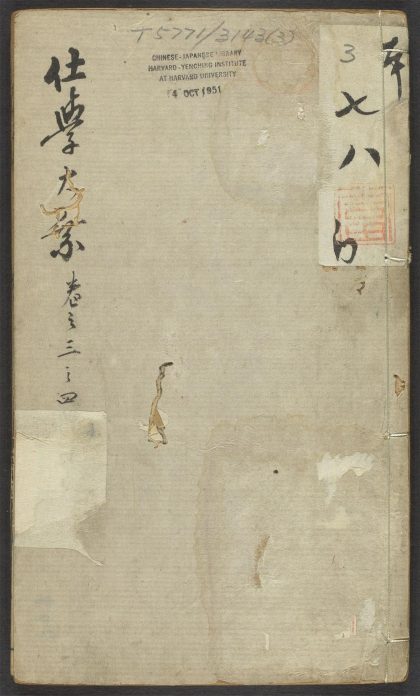 T5771/3143(3)
CHINESE-JAPANESE LIBRARY
HARVARD-YENCHING INSTITUTE
AT HARVARD UNIVERSITY
4 OCT 1951
3
七八
仕學大乘
卷之三之四